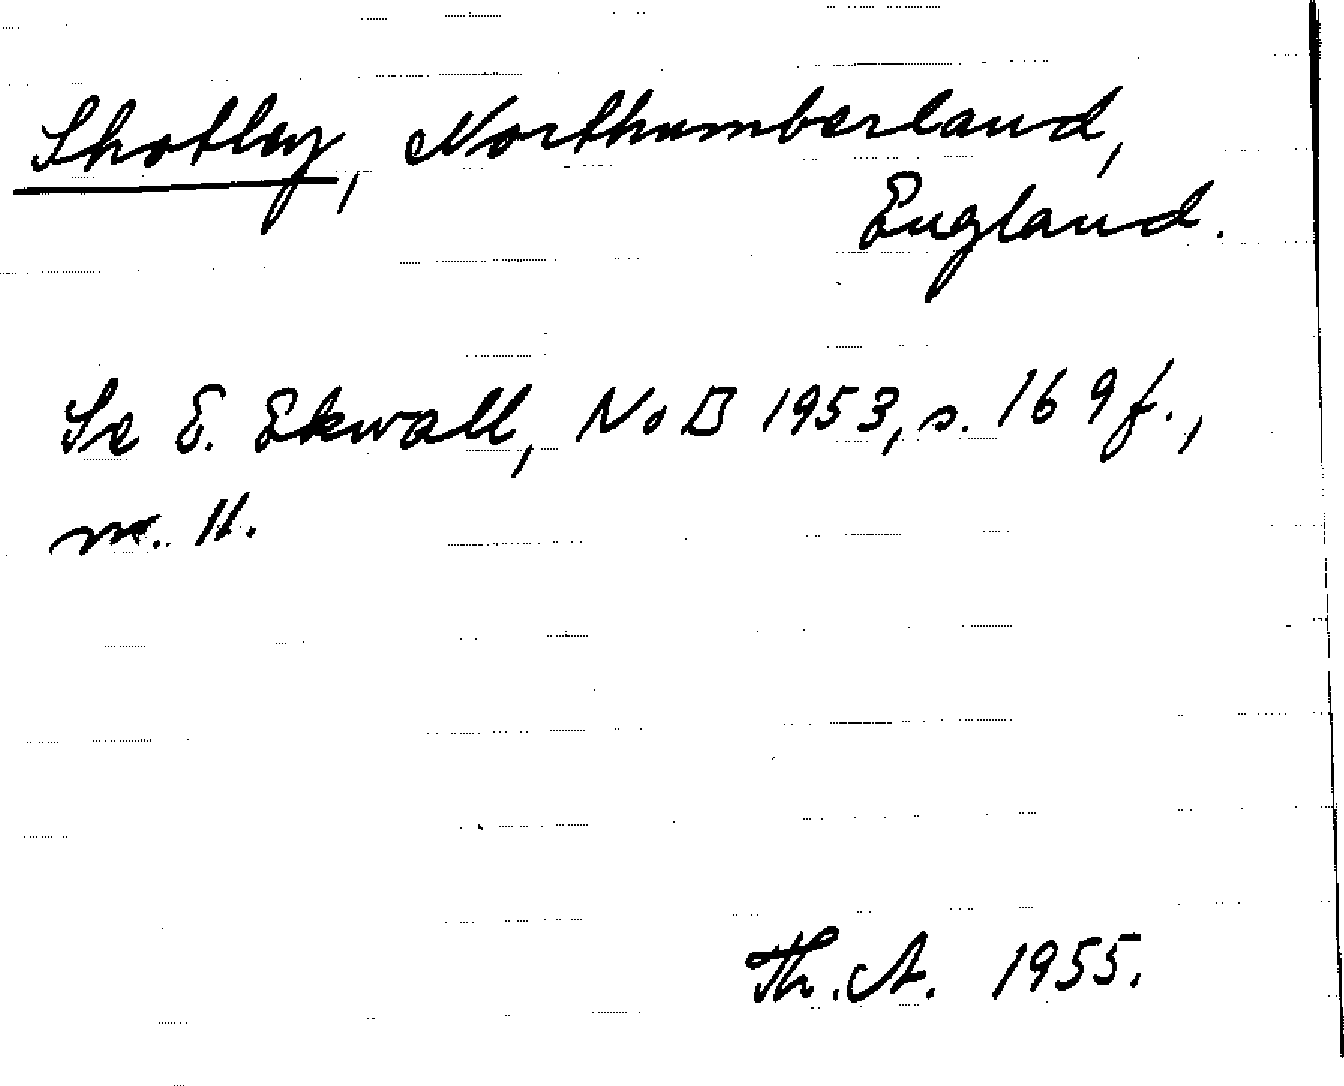 Shotley, Northumberland,
England.
Se E. Ekwall, NoB 1953, s. 169f.,
m. H.
Th. A. 1955.